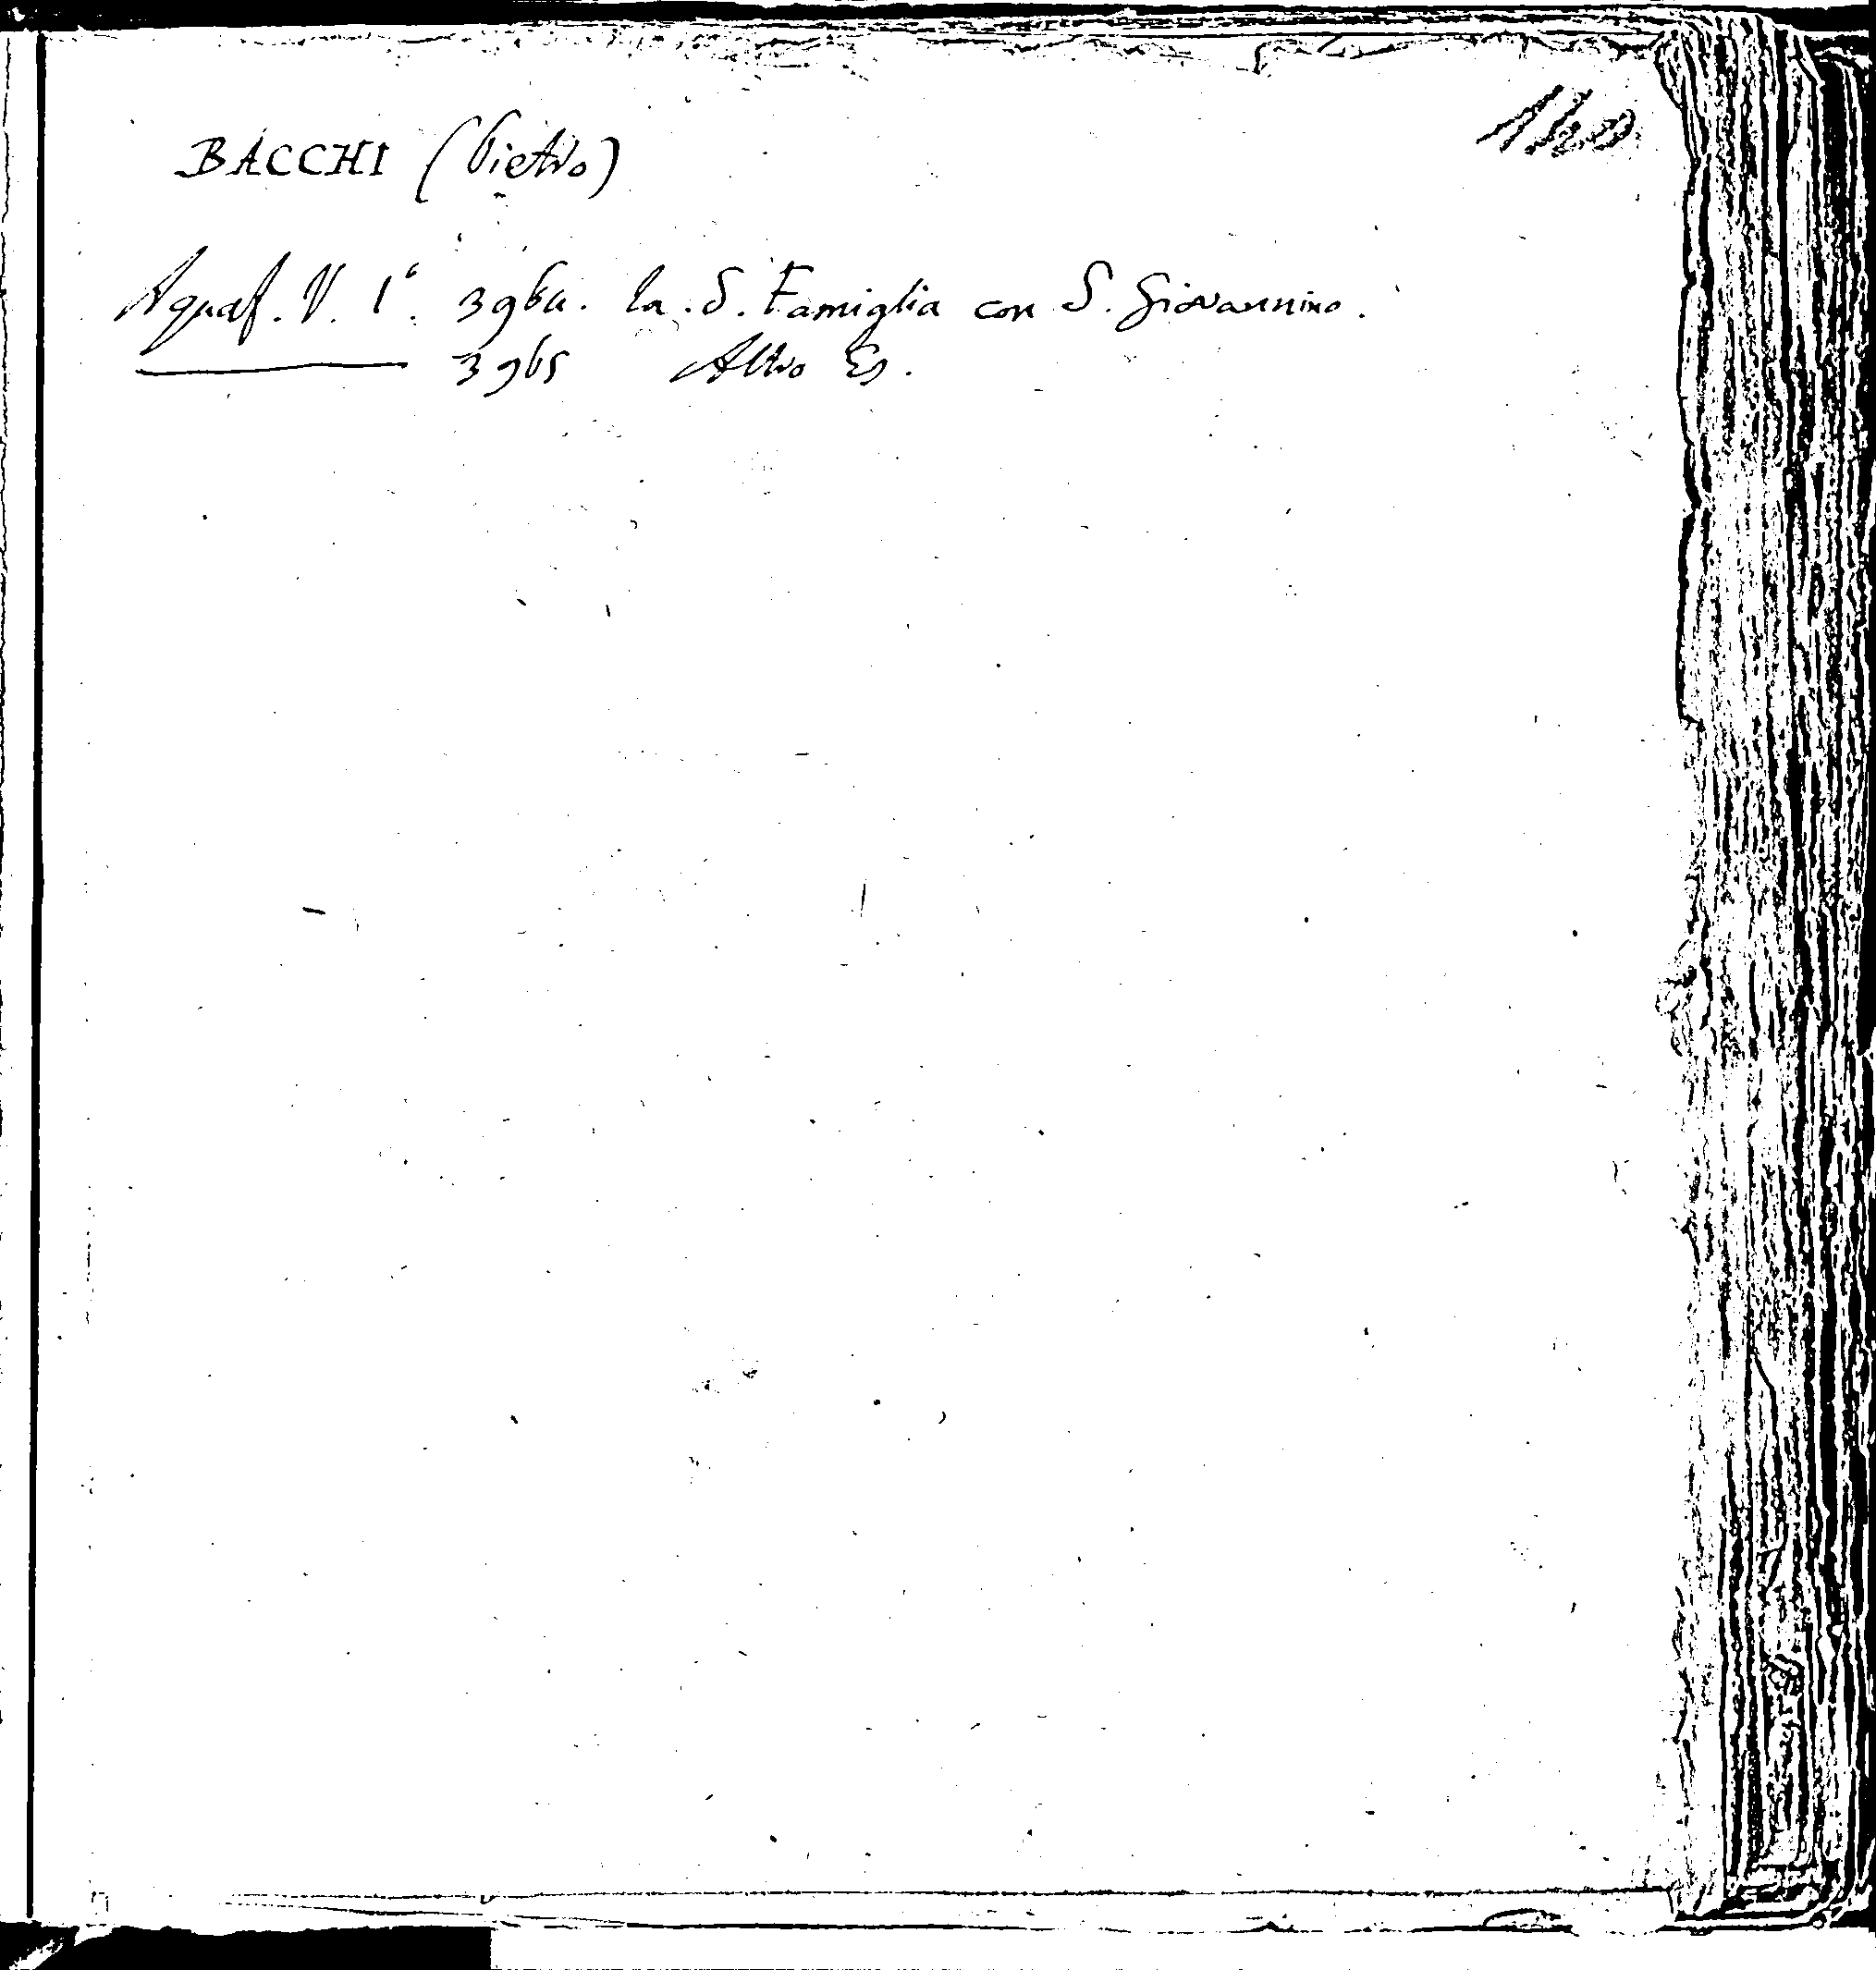 140
BACCHI (Pietro)
Aquaf. V. 1°. 3964. la S. Famiglia con S. Giovannino.
3965 Altro Es.